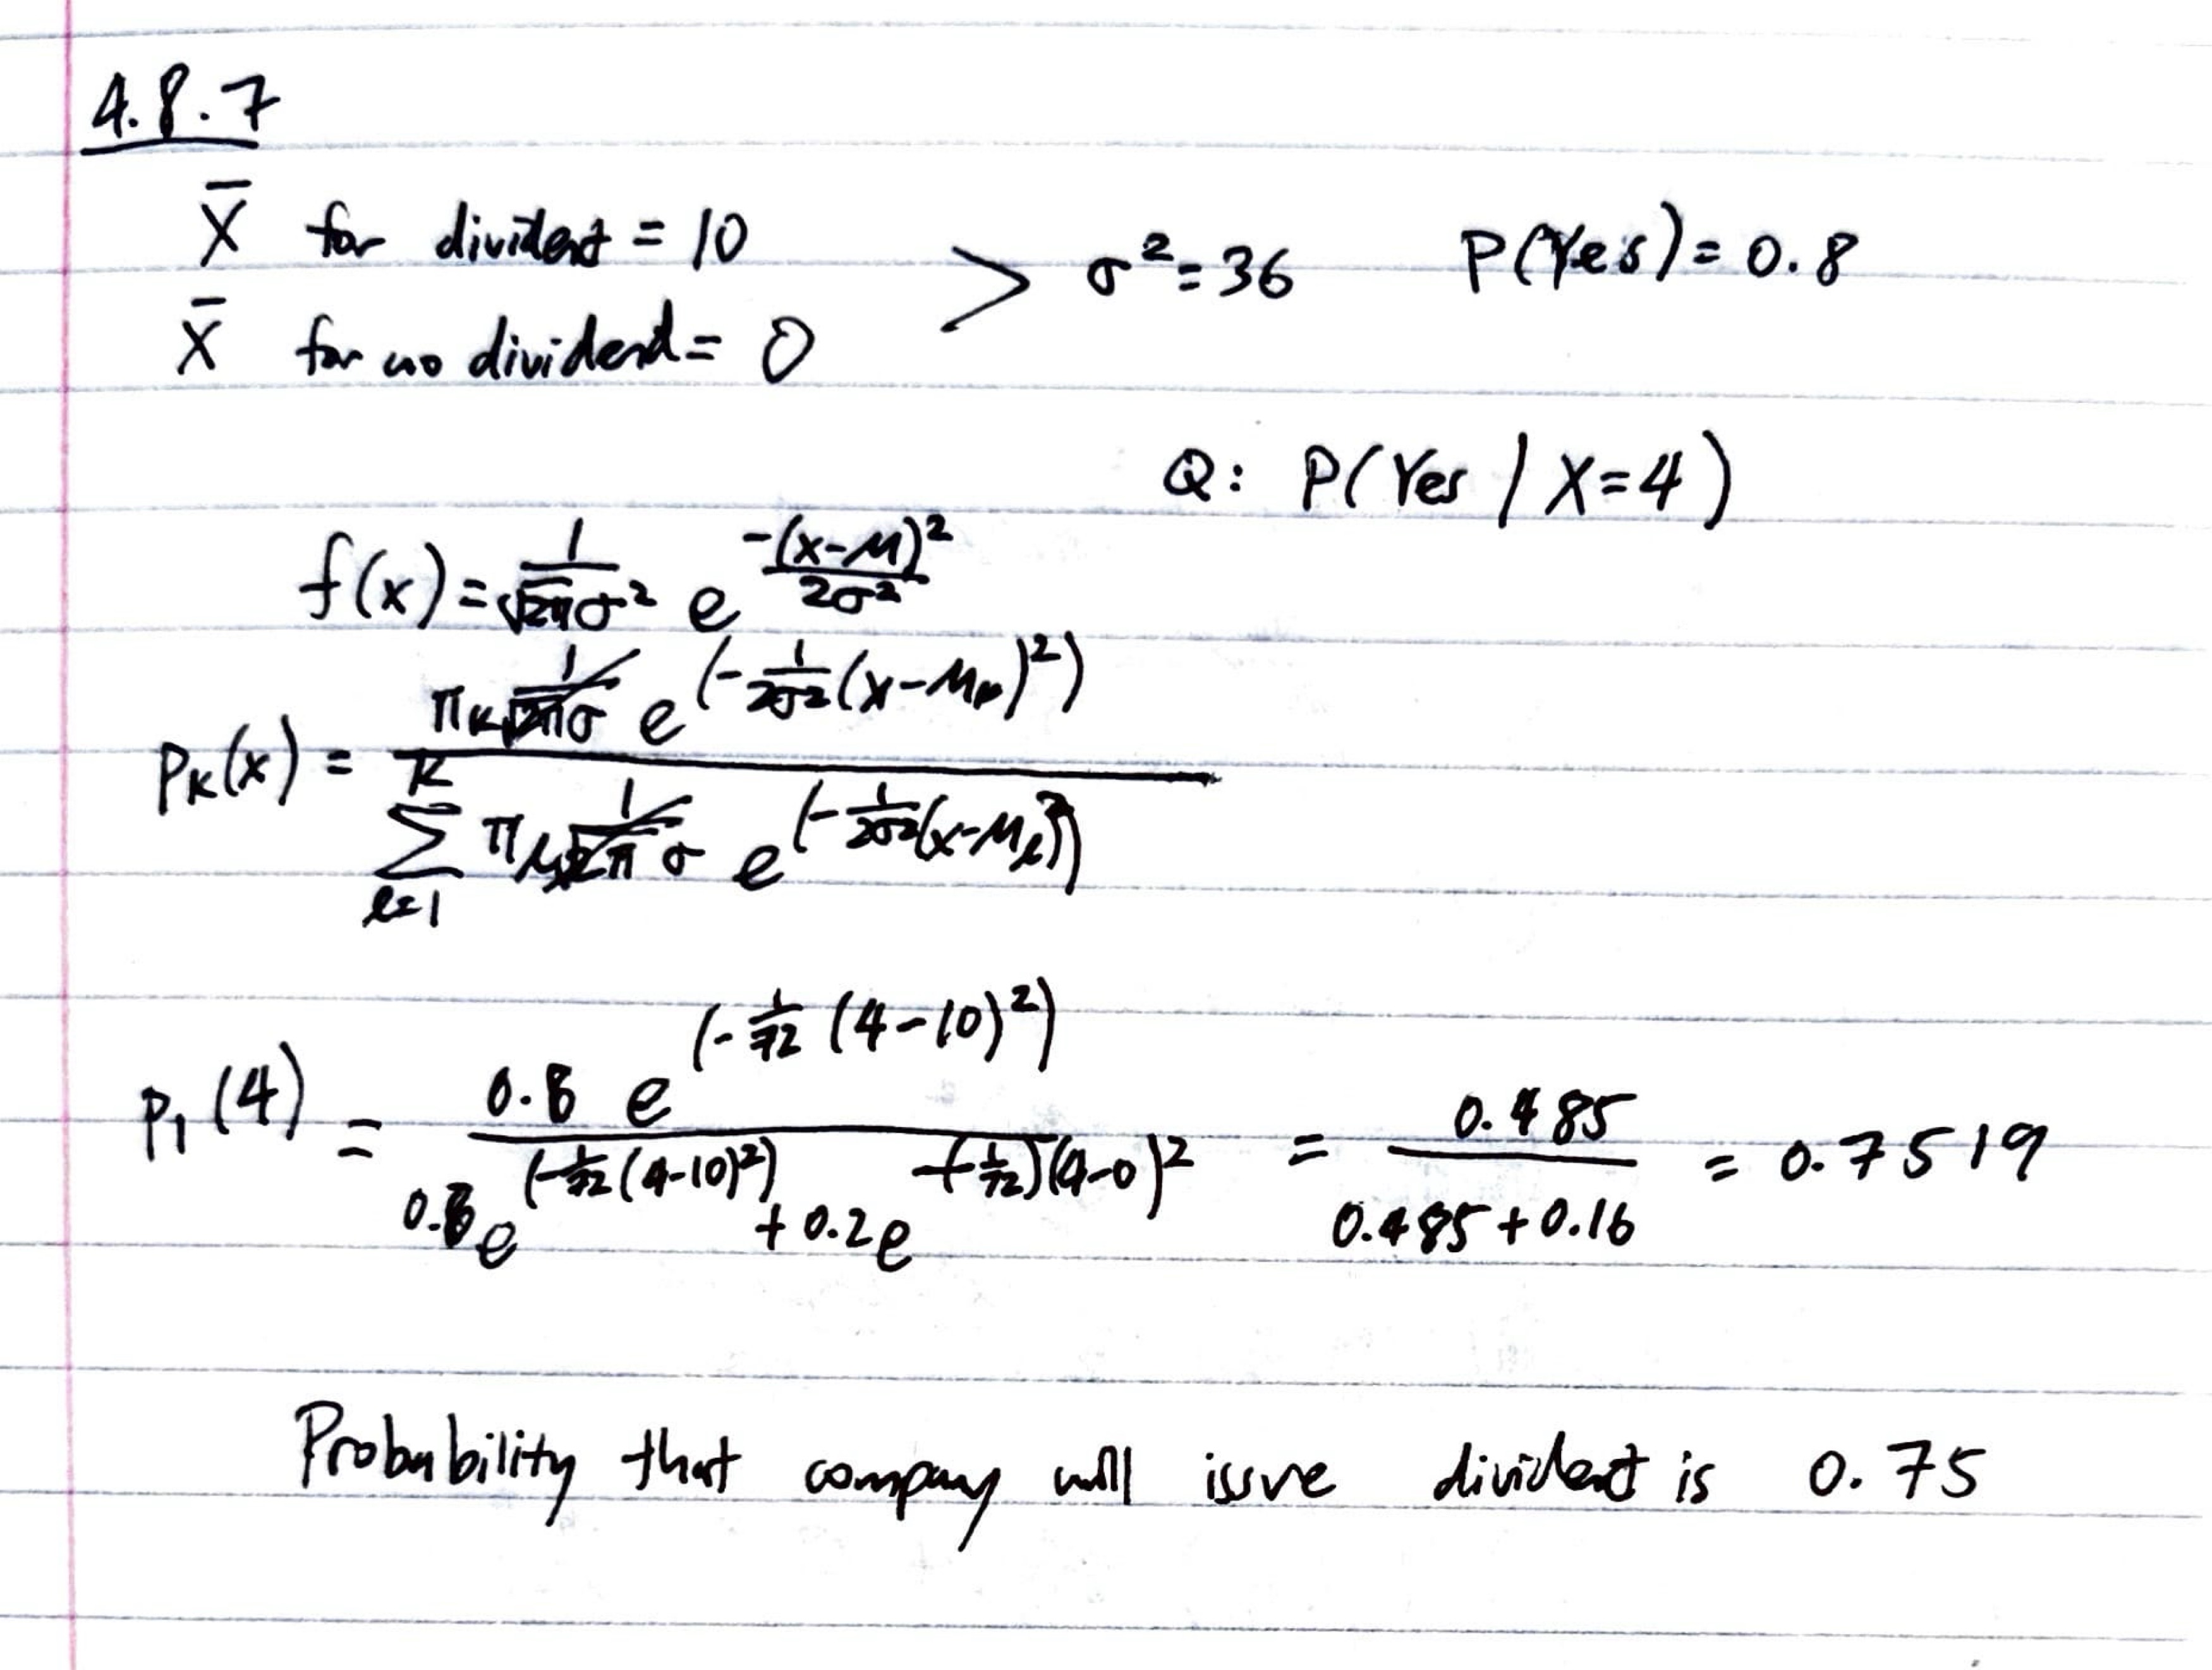 4.8.7
X̄ for dividend = 10
X̄ for no dividend = 0
> σ² = 36 P(Yes) = 0.8
Q: P(Yes | X=4)
f(x) = 1/√(2π)σ² e^(-(x-μ)²/2σ²)
pₖ(x) = πₖ 1/(√(2π)σ) e^(-1/2σ² (x-μₖ)²) / Σ_{l=1}^{K} πₗ 1/(√(2π)σ) e^(-1/2σ² (x-μₗ)²)
p₁(4) = 0.8 e^(-1/72 (4-10)²) / 0.8e^(-1/72 (4-10)²) + 0.2e^-(1/72)(4-0)² = 0.485 / 0.485 + 0.16 = 0.7519
Probability that company will issue dividend is 0.75